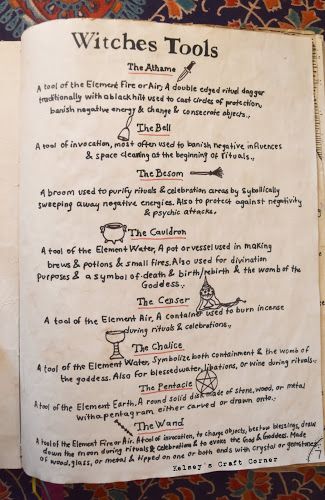 Witches Tools
The Athame
A tool of the Element Fire or Air, A double edged ritual dagger
traditionally with a black hilt used to cast circles of protection,
banish negative energy & change & consecrate objects.
The Bell
A tool of invocation, most often used to banish negative influences
& space cleaning at the beginning of rituals.
The Besom
A broom used to purify rituals & celebration areas by sybollically
sweeping away negative energies. Also to protect against negativity
& psychic attacks.
The Cauldron
A tool of the Element Water, A pot or vessel used in making
brews & potions & small fires. Also used for divination
purposes & a symbol of death & birth/rebirth & the womb of the
Goddess.
The Censer
A tool of the Element Air, A container used to burn incense
during rituals & celebrations.
The Chalice
A tool of the Element Water, Symbolize both containment & the womb of
the goddess. Also for blessed water, libations, or wine during rituals.
The Pentacle
A tool of the Element Earth, A round solid disk made of stone, wood, or metal
with a pentagram either carved or drawn onto.
The Wand
A tool of the Element Fire or Air. A tool of invocation, to charge objects, bestow blessings, draw
down the moon during rituals & celebrations & to evoke the God & Goddess. Made
of wood, glass, or metal & tipped on one or both ends with crystal or gemstones.
Kelsey's Craft Corner